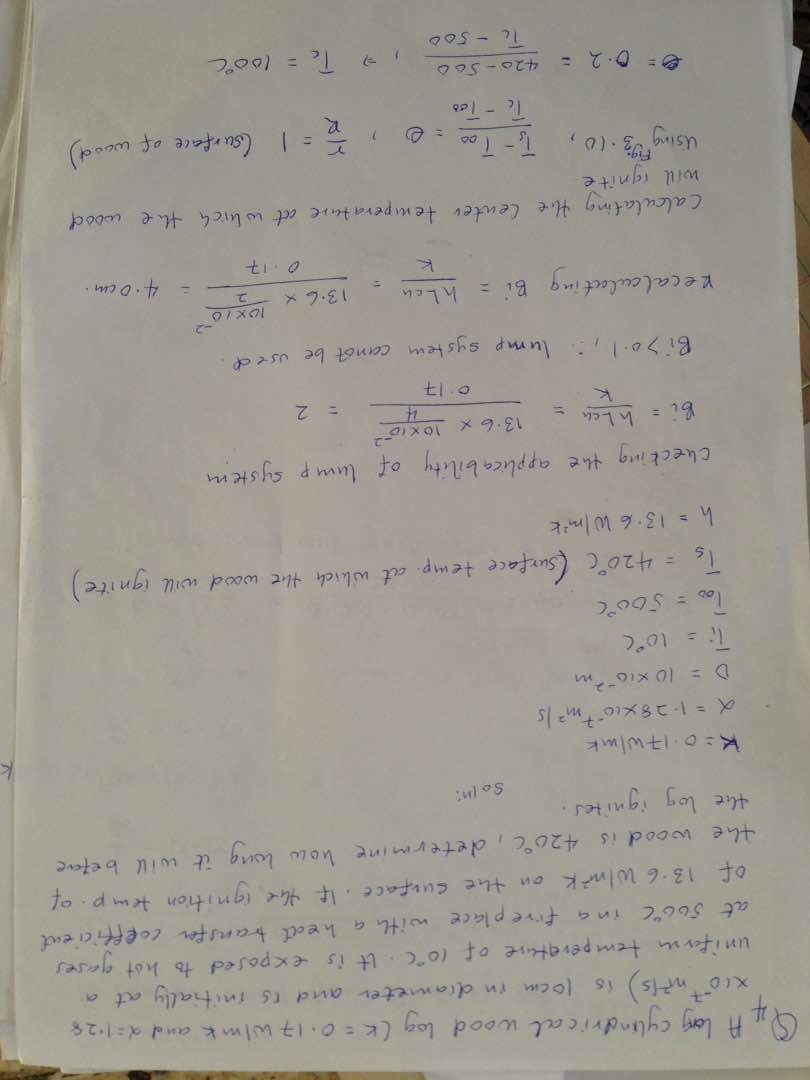 Q4 A long cylindrical wood log (K = 0.17 W/mK and α = 1.28
×10⁻⁷ m²/s) is 10cm in diameter and is initially at a
uniform temperature of 10°C. It is exposed to hot gases
at 500°C in a fireplace with a heat transfer coefficient
of 13.6 W/m²K on the surface. If the ignition temp. of
the wood is 420°C, determine how long it will before
the log ignites.
Soln:
K = 0.17 W/mK
α = 1.28×10⁻⁷ m²/s
D = 10×10⁻² m
Ti = 10°C
T∞ = 500°C
Ts = 420°C (surface temp. at which the wood will ignite)
h = 13.6 W/m²K
Checking the applicability of lump system
Bi = hLcy/K = (13.6 × 10×10⁻²/4)/0.17 = 2
Bi > 0.1, ∴ lump system canot be used.
Recalculating Bi = hLcy/K = (13.6 × 10×10⁻²/2)/0.17 = 4.0cm.
Calculating the center temperature at which the wood
will ignite
Using Fig. 3.10, (Ts - T∞)/(Tc - T∞) = θ, r/R = 1 (surface of wood)
θ = 0.2 = (420-500)/(Tc - 500), ⇒ Tc = 100°C
K